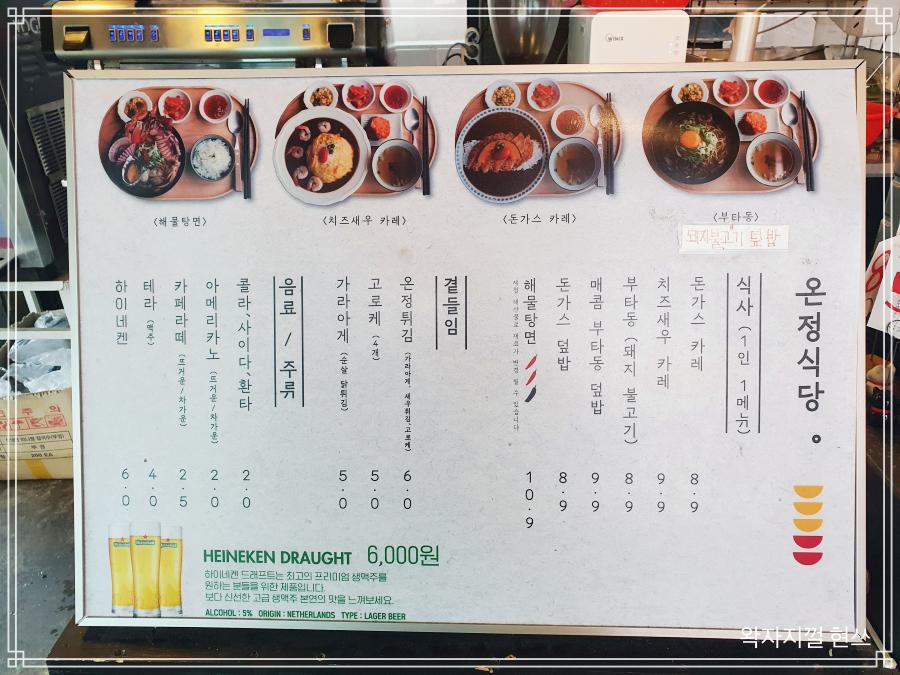 WINIX
<해물탕면>
<치즈새우 카레>
<돈가스 카레>
<부타동>
돼지불고기 덮밥
온정식당。
식사 (1인 1메뉴)
돈가스 카레 8.9
치즈새우 카레 9.9
부타동 (돼지 불고기) 8.9
매콤 부타동 덮밥 9.9
돈가스 덮밥 8.9
해물탕면 10.9
곁들임
온정튀김 (가라아게, 새우튀김, 고로케) 6.0
고로케 (4개) 5.0
가라아게 (순살 닭튀김) 5.0
음료 / 주류
콜라、사이다、환타 2.0
아메리카노 (뜨거운/차가운) 2.0
카페라떼 (뜨거운/차가운) 2.5
테라 (맥주) 4.0
하이네켄 6.0
HEINEKEN DRAUGHT 6,000원
하이네켄 드래프트는 최고의 프리미엄 생맥주를
원하는 분들을 위한 제품입니다.
보다 신선한 고급 생맥주 본연의 맛을 느껴보세요.
ALCOHOL : 5% ORIGIN : NETHERLANDS TYPE : LAGER BEER
왁자지껄 현쓰